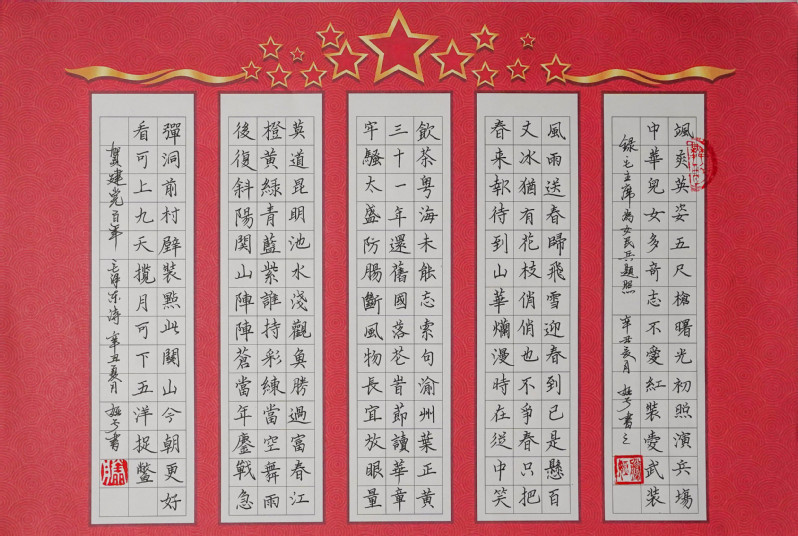 颯爽英姿五尺槍曙光初照演兵塲
中華兒女多奇志不愛紅裝愛武裝
錄毛主席為女民兵題照 辛丑夏月 書之
風雨送春歸飛雪迎春到已是懸百
丈冰猶有花枝俏俏也不爭春只把
春来報待到山華爛漫時在從中笑
飲茶粤海未能忘索句渝州葉正黄
三十一年還舊國落花旹節讀華章
牢騷太盛防腸斷風物長宜放眼量
莫道昆明池水淺觀魚勝過富春江
橙黄綠青藍紫誰持彩練當空舞雨
後復斜陽関山陣陣蒼當年鏖戰急
彈洞前村壁裝點此関山今朝更好
看可上九天攬月可下五洋捉鱉
賀建党百年 毛澤东詩 辛丑夏月 書